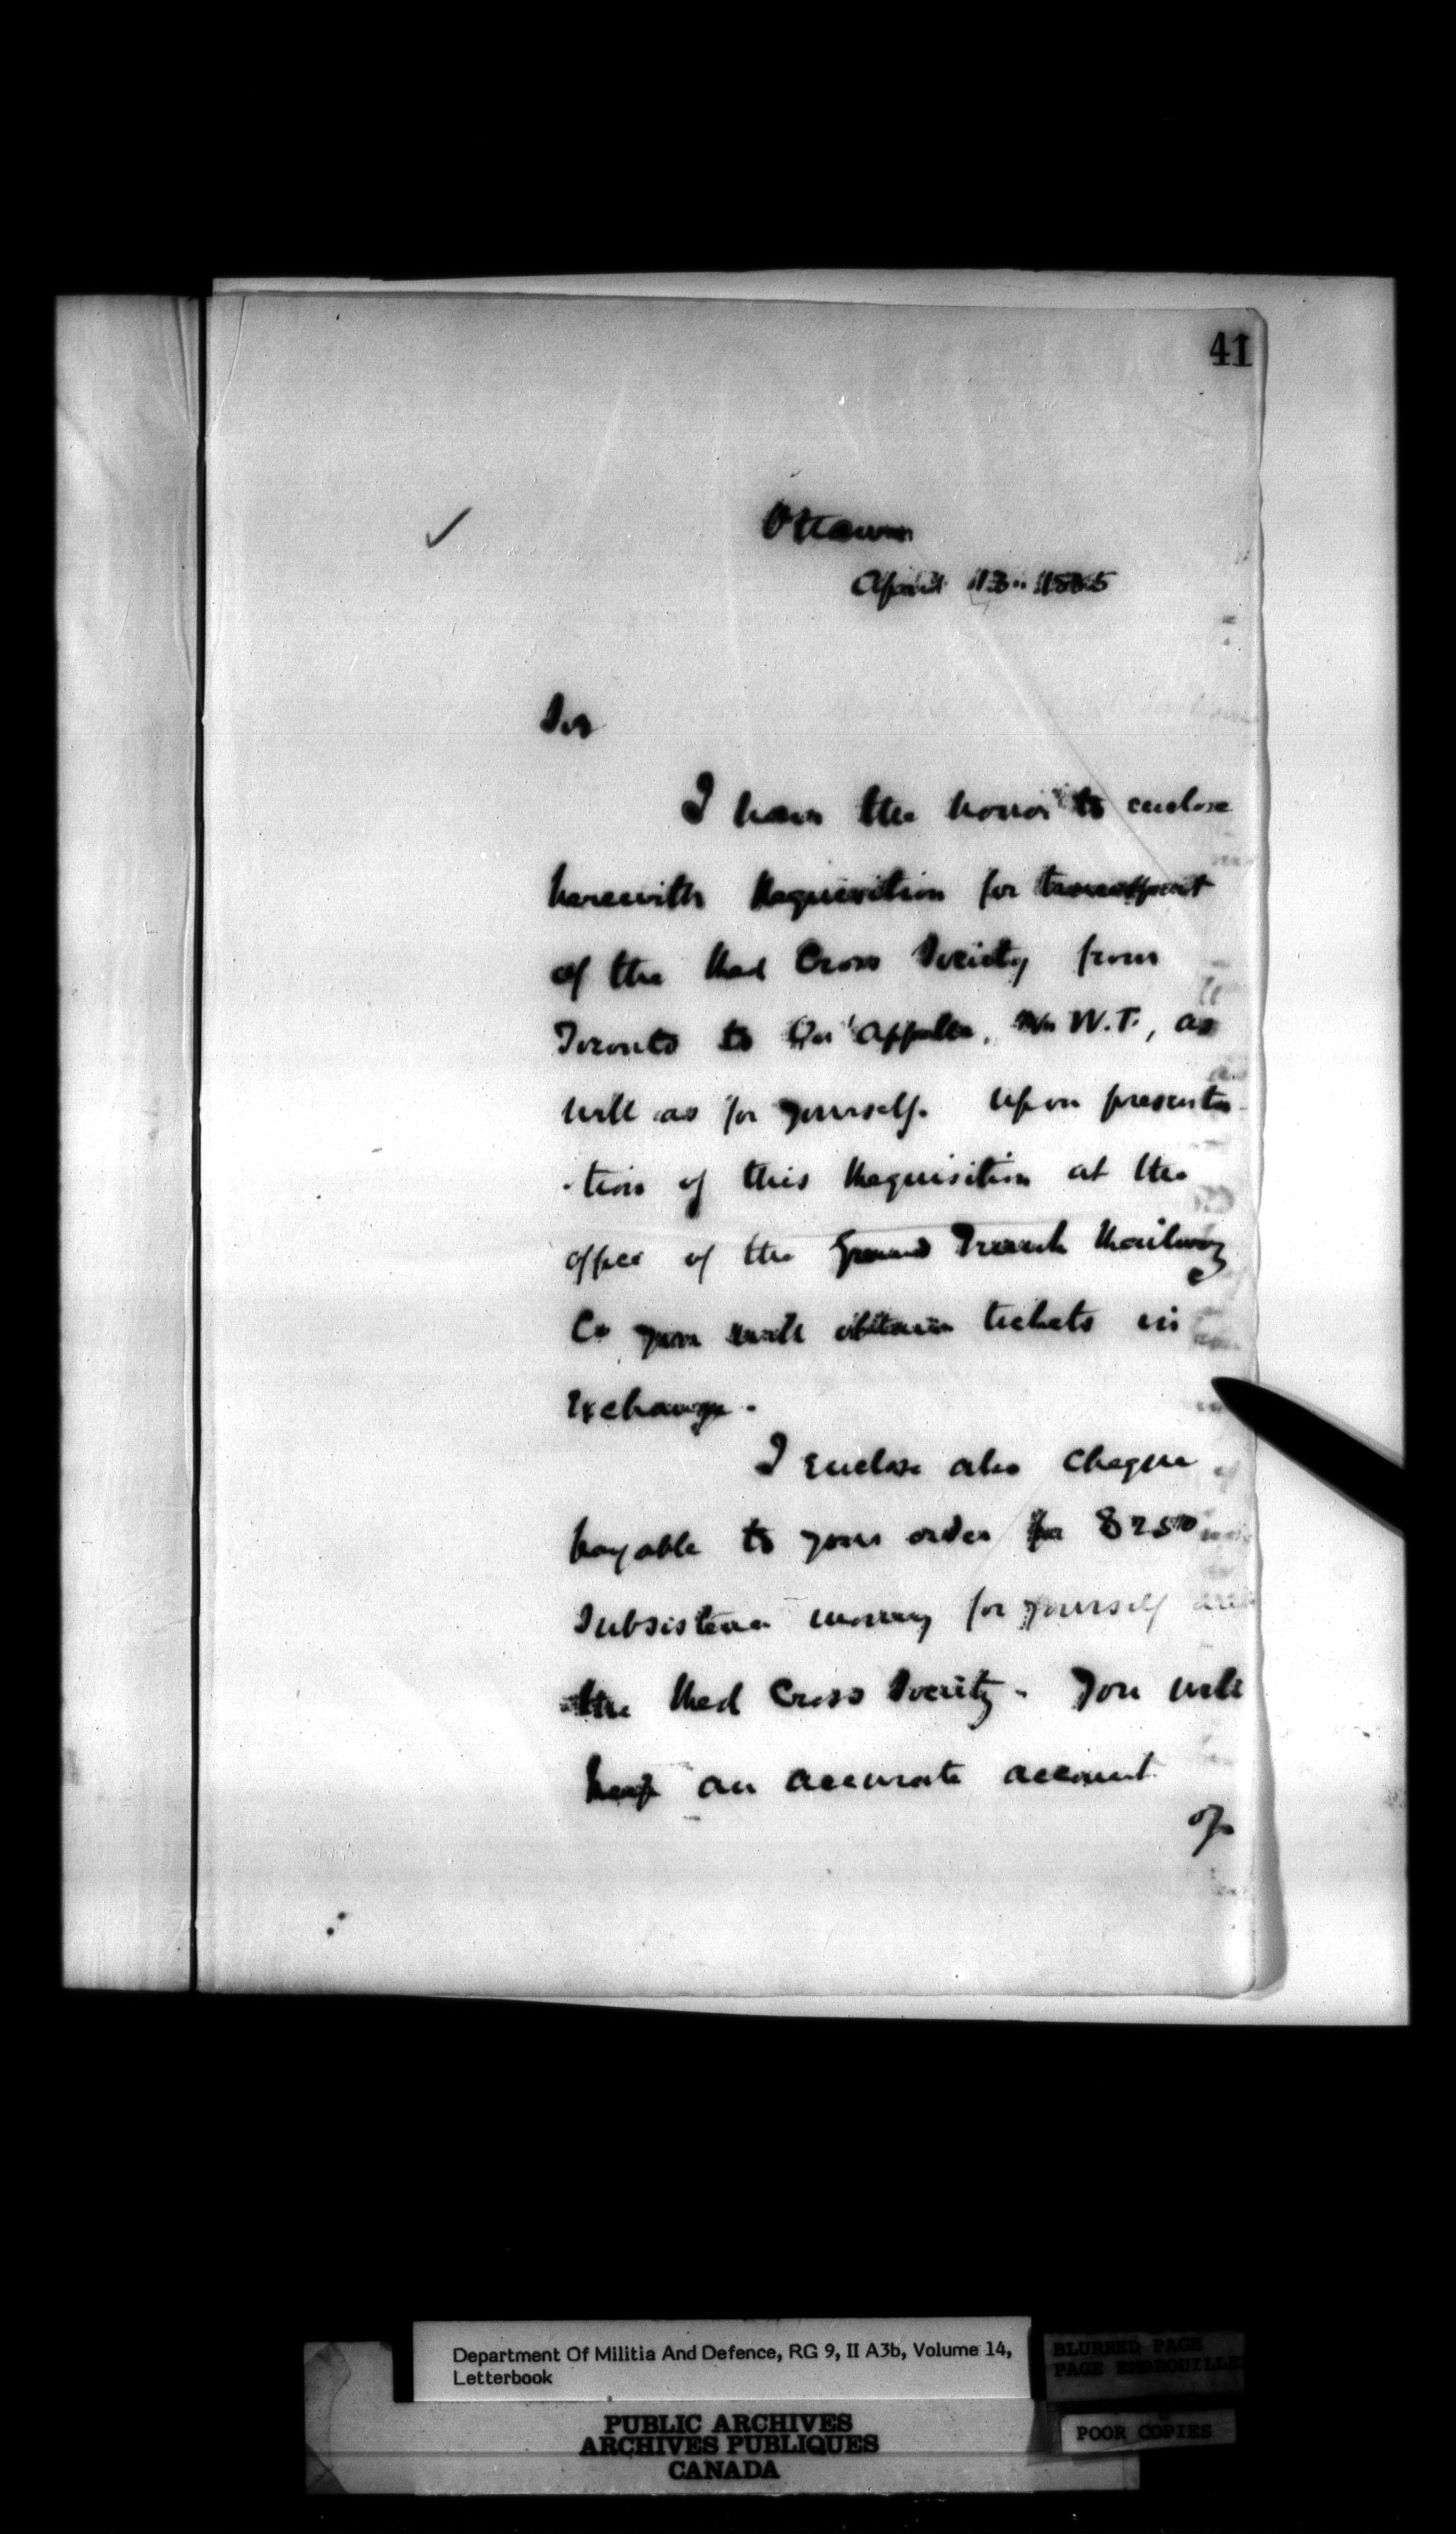 41
Ottawa
April 13. 1885
Sir
I have the honor to enclose
herewith Requisition for transport
of the Red Cross Society from
Toronto to Qu'Appelle, N.W.T., as
well as for yourself. Upon presenta-
-tion of this Requisition at the
office of the Grand Trunk Railway
Co you will obtain tickets in
Exchange.
I enclose also cheque
payable to your order for
Subsistence money for yourself and
the Red Cross Society. You will
keep an accurate account
of
Department Of Militia And Defence, RG 9, II A3b, Volume 14,
Letterbook
BLURRED PAGE
PAGE EMBROUILLE
POOR COPIES
PUBLIC ARCHIVES
ARCHIVES PUBLIQUES
CANADA